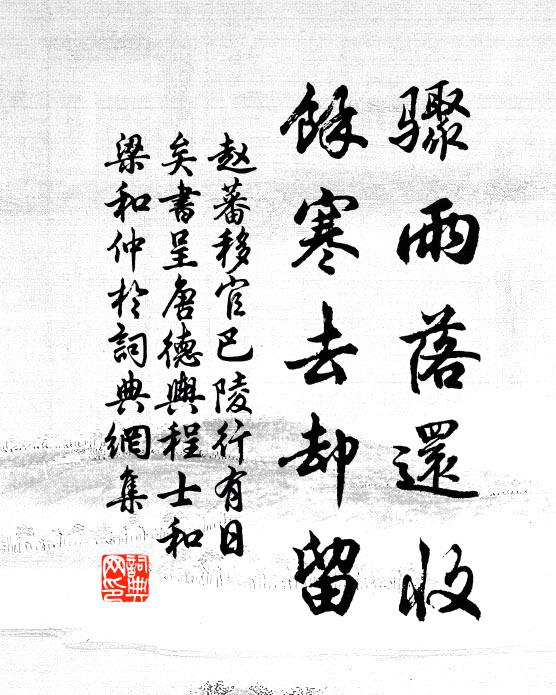 骤雨落還收
餘寒去却留
赵蕃移官巴陵行有日
矣書呈唐德興程士和
梁和仲於詞典網集
詞典网印